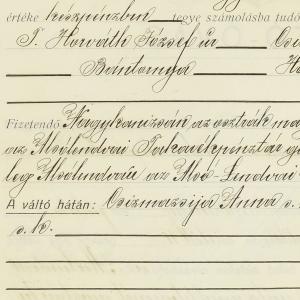 értéke készpénzben tegye számolásba tudó
T. Horváth József úr
Bántornya
Fizetendő Nagykanizsán az osztrák ma
az Alsólendvai Takarékpénztár
leg Alsólendván az Alsó-Lendvai
A váltó hátán: Csizmazija Anna s.
s. k.